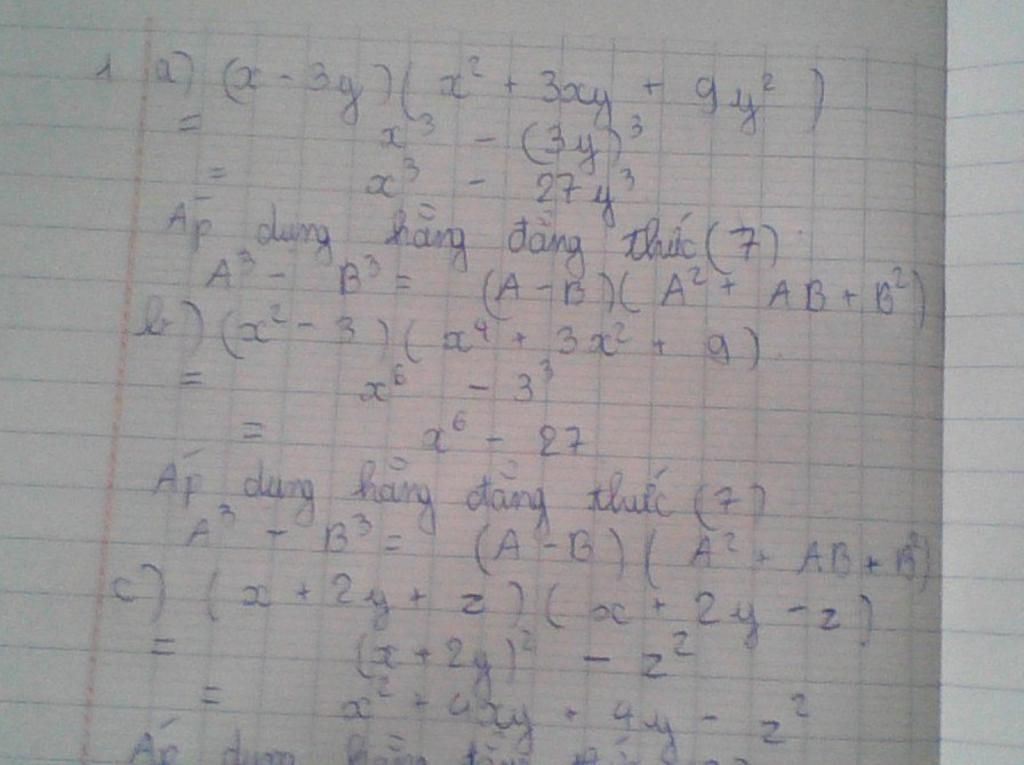 1 a) (x - 3y)(x² + 3xy + 9y²)
= x³ - (3y)³
= x³ - 27y³
Áp dụng hằng đẳng thức (7)
A³ - B³ = (A - B)(A² + AB + B²)
b) (x² - 3)(x⁴ + 3x² + 9)
= x⁶ - 3³
= x⁶ - 27
Áp dụng hằng đẳng thức (7)
A³ - B³ = (A - B)(A² + AB + B²)
c) (x + 2y + z)(x + 2y - z)
= (x + 2y)² - z²
= x² + 4xy + 4y - z²
Áp dụng hằng